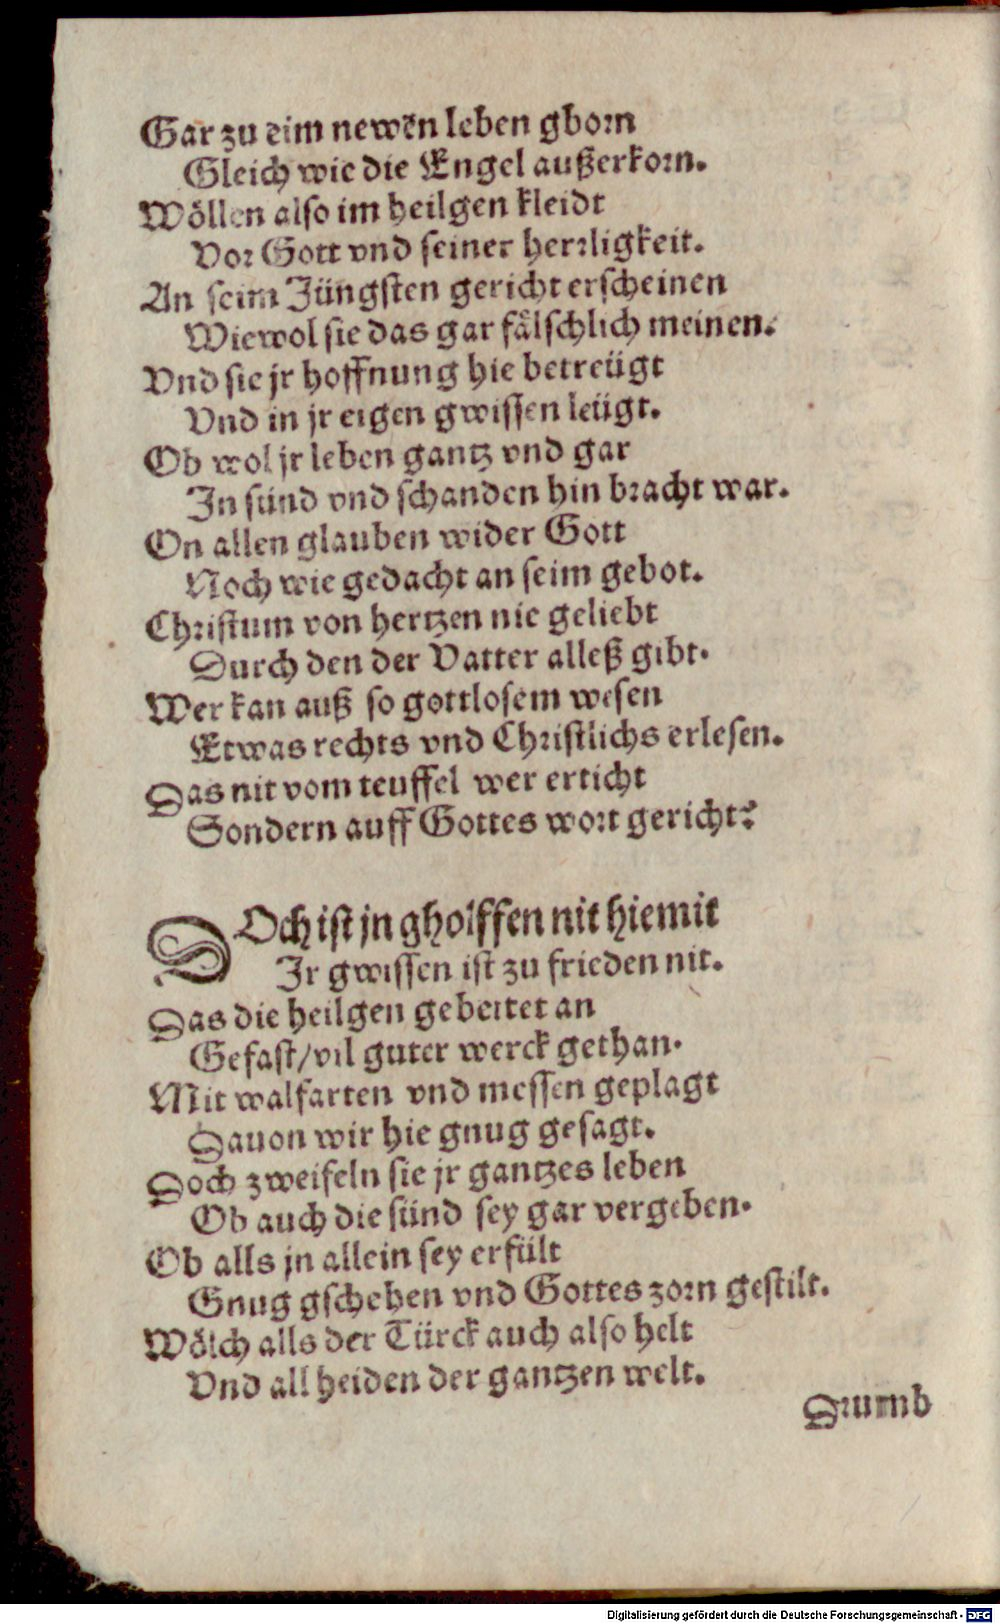 Gar zu eim newen leben gborn
Gleich wie die Engel außerkorn.
Wöllen also im heilgen kleidt
Vor Gott vnd seiner herrligkeit.
An seim Jüngsten gericht erscheinen
Wiewol sie das gar fälschlich meinen.
Vnd sie jr hoffnung hie betreügt
Vnd in jr eigen gwissen leügt.
Ob wol jr leben gantz vnd gar
In sünd vnd schanden hin bracht war.
On allen glauben wider Gott
Noch wie gedacht an seim gebot.
Christum von hertzen nie geliebt
Durch den der Vatter alleß gibt.
Wer kan auß so gottlosem wesen
Etwas rechts vnd Christlichs erlesen.
Das nit vom teuffel wer erticht
Sondern auff Gottes wort gericht?
DOch ist jn gholffen nit hiemit
Ir gwissen ist zu frieden nit.
Das die heilgen gebettet an
Gefast/vil guter werck gethan.
Mit walfarten vnd messen geplagt
Dauon wir hie gnug gesagt.
Doch zweifeln sie jr gantzes leben
Ob auch die sünd sey gar vergeben.
Ob alls jn allein sey erfült
Gnug gschehen vnd Gottes zorn gestilt.
Wölch alls der Türck auch also helt
Vnd all heiden der gantzen welt.
Drumb
Digitalisierung gefördert durch die Deutsche Forschungsgemeinschaft - DFG